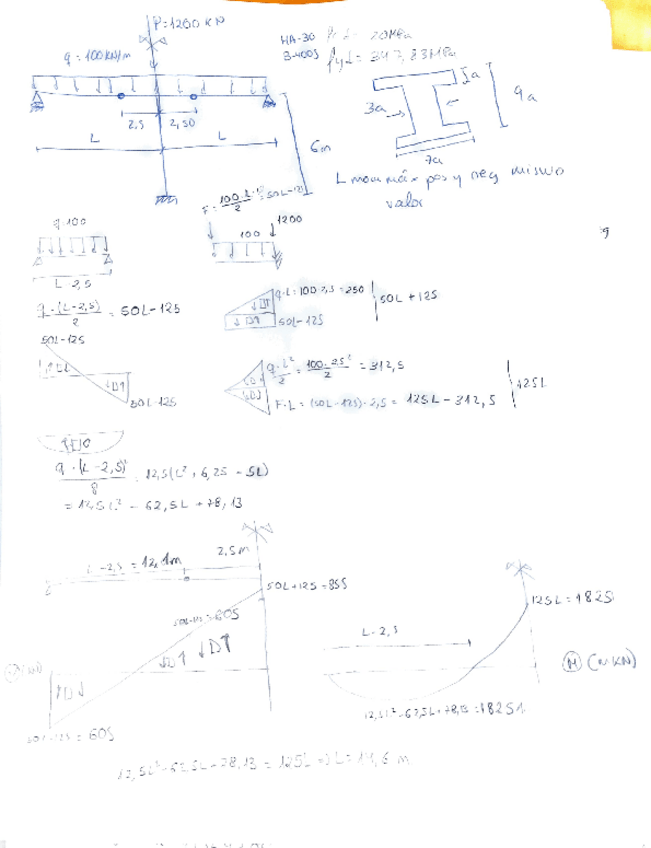 P=1200 KN
HA-30 fcd = 20MPa
B-400S fyd = 347,83MPa
q=100KN/m
2,5
2,50
L
L
6m
3a
a
9a
7a
L mom máx pos y neg mismo
valor
F = 100·L/2 = 50L-125
1200
q·100
100
L-2,5
q·(L-2,5)/2 = 50L-125
q·L=100·2,5=250
50L+125
50L-125
50L-125
50L-125
q·L²/2 = 100·2,5²/2 = 312,5
F·L = (50L-125)·2,5 = 125L-312,5
125L
q·(L-2,5)²/8 = 12,5(L²+6,25-5L)
= 12,5L²-62,5L+78,13
L-2,5 = 12,1m
2,5m
50L+125=855
50L-125=605
125L=1825
L-2,5
M (m KN)
12,5L²-62,5L+78,13=1825
50L-125=605
12,5L²-62,5L+78,13=125L ⇒ L=14,6 m